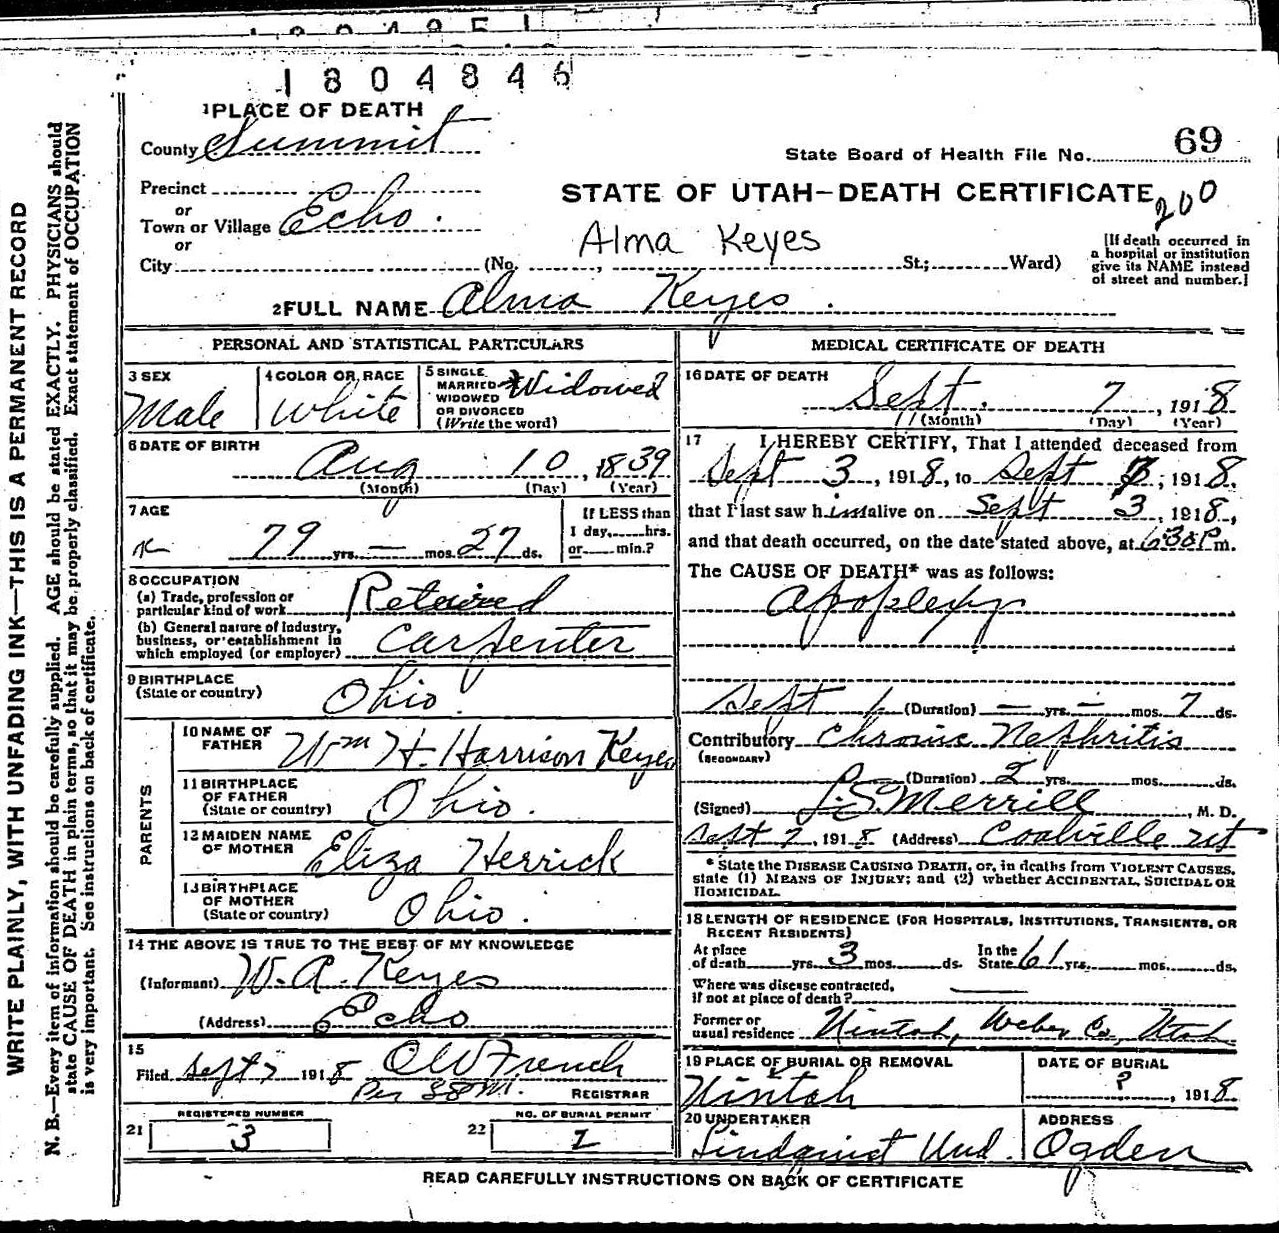 1804851
1804846
1 PLACE OF DEATH
County Summit
State Board of Health File No. 69
Precinct
or
Town or Village Echo.
or
STATE OF UTAH—DEATH CERTIFICATE 200
Alma Keyes
City (No. , St.; Ward)
[If death occurred in
a hospital or institution
give its NAME instead
of street and number.]
2 FULL NAME Alma Keyes.
PERSONAL AND STATISTICAL PARTICULARS
3 SEX
Male
4 COLOR OR RACE
White
5 SINGLE
MARRIED
WIDOWED
OR DIVORCED
(Write the word)
Widowed
6 DATE OF BIRTH
Aug 10, 1839
(Month) (Day) (Year)
7 AGE
79 yrs. — mos. 27 ds.
If LESS than
1 day, hrs.
or min.?
8 OCCUPATION
(a) Trade, profession or
particular kind of work Retired
(b) General nature of industry,
business, or establishment in
which employed (or employer) Carpenter
9 BIRTHPLACE
(State or country) Ohio.
PARENTS
10 NAME OF
FATHER Wm H. Harrison Keyes
11 BIRTHPLACE
OF FATHER
(State or country) Ohio.
12 MAIDEN NAME
OF MOTHER Eliza Herrick
13 BIRTHPLACE
OF MOTHER
(State or country) Ohio.
14 THE ABOVE IS TRUE TO THE BEST OF MY KNOWLEDGE
(Informant) W. A. Keyes
(Address) Echo
15
Filed Sept 7 1918 O W French
Per
REGISTRAR
REGISTERED NUMBER
21 3
NO. OF BURIAL PERMIT
22 2
MEDICAL CERTIFICATE OF DEATH
16 DATE OF DEATH
Sept. 7, 1918
(Month) (Day) (Year)
17 I HEREBY CERTIFY, That I attended deceased from
Sept 3, 1918, to Sept 3, 1918.
that I last saw him alive on Sept 3, 1918,
and that death occurred, on the date stated above, at 6:30 P m.
The CAUSE OF DEATH* was as follows:
Apoplexy
Sept 1 (Duration) — yrs. — mos. 7 ds.
Contributory Chronic Nephritis
(SECONDARY)
(Duration) 2 yrs. mos. ds.
(Signed) Merrill, M. D.
Sept 7, 1918 (Address) Coalville Ut
* State the DISEASE CAUSING DEATH, or, in deaths from VIOLENT CAUSES,
state (1) MEANS OF INJURY; and (2) whether ACCIDENTAL, SUICIDAL OR
HOMICIDAL.
18 LENGTH OF RESIDENCE (FOR HOSPITALS, INSTITUTIONS, TRANSIENTS, OR
RECENT RESIDENTS)
At place
of death yrs. 3 mos. ds.
In the
State 61 yrs. mos. ds.
Where was disease contracted,
if not at place of death? —
Former or
usual residence Uintah, Weber Co, Utah
19 PLACE OF BURIAL OR REMOVAL
Uintah
DATE OF BURIAL
?, 1918.
20 UNDERTAKER
Lindquist Und.
ADDRESS
Ogden
READ CAREFULLY INSTRUCTIONS ON BACK OF CERTIFICATE
WRITE PLAINLY, WITH UNFADING INK—THIS IS A PERMANENT RECORD
N. B.—Every item of information should be carefully supplied. AGE should be stated EXACTLY. PHYSICIANS should
state CAUSE OF DEATH in plain terms, so that it may be properly classified. Exact statement of OCCUPATION
is very important. See instructions on back of certificate.